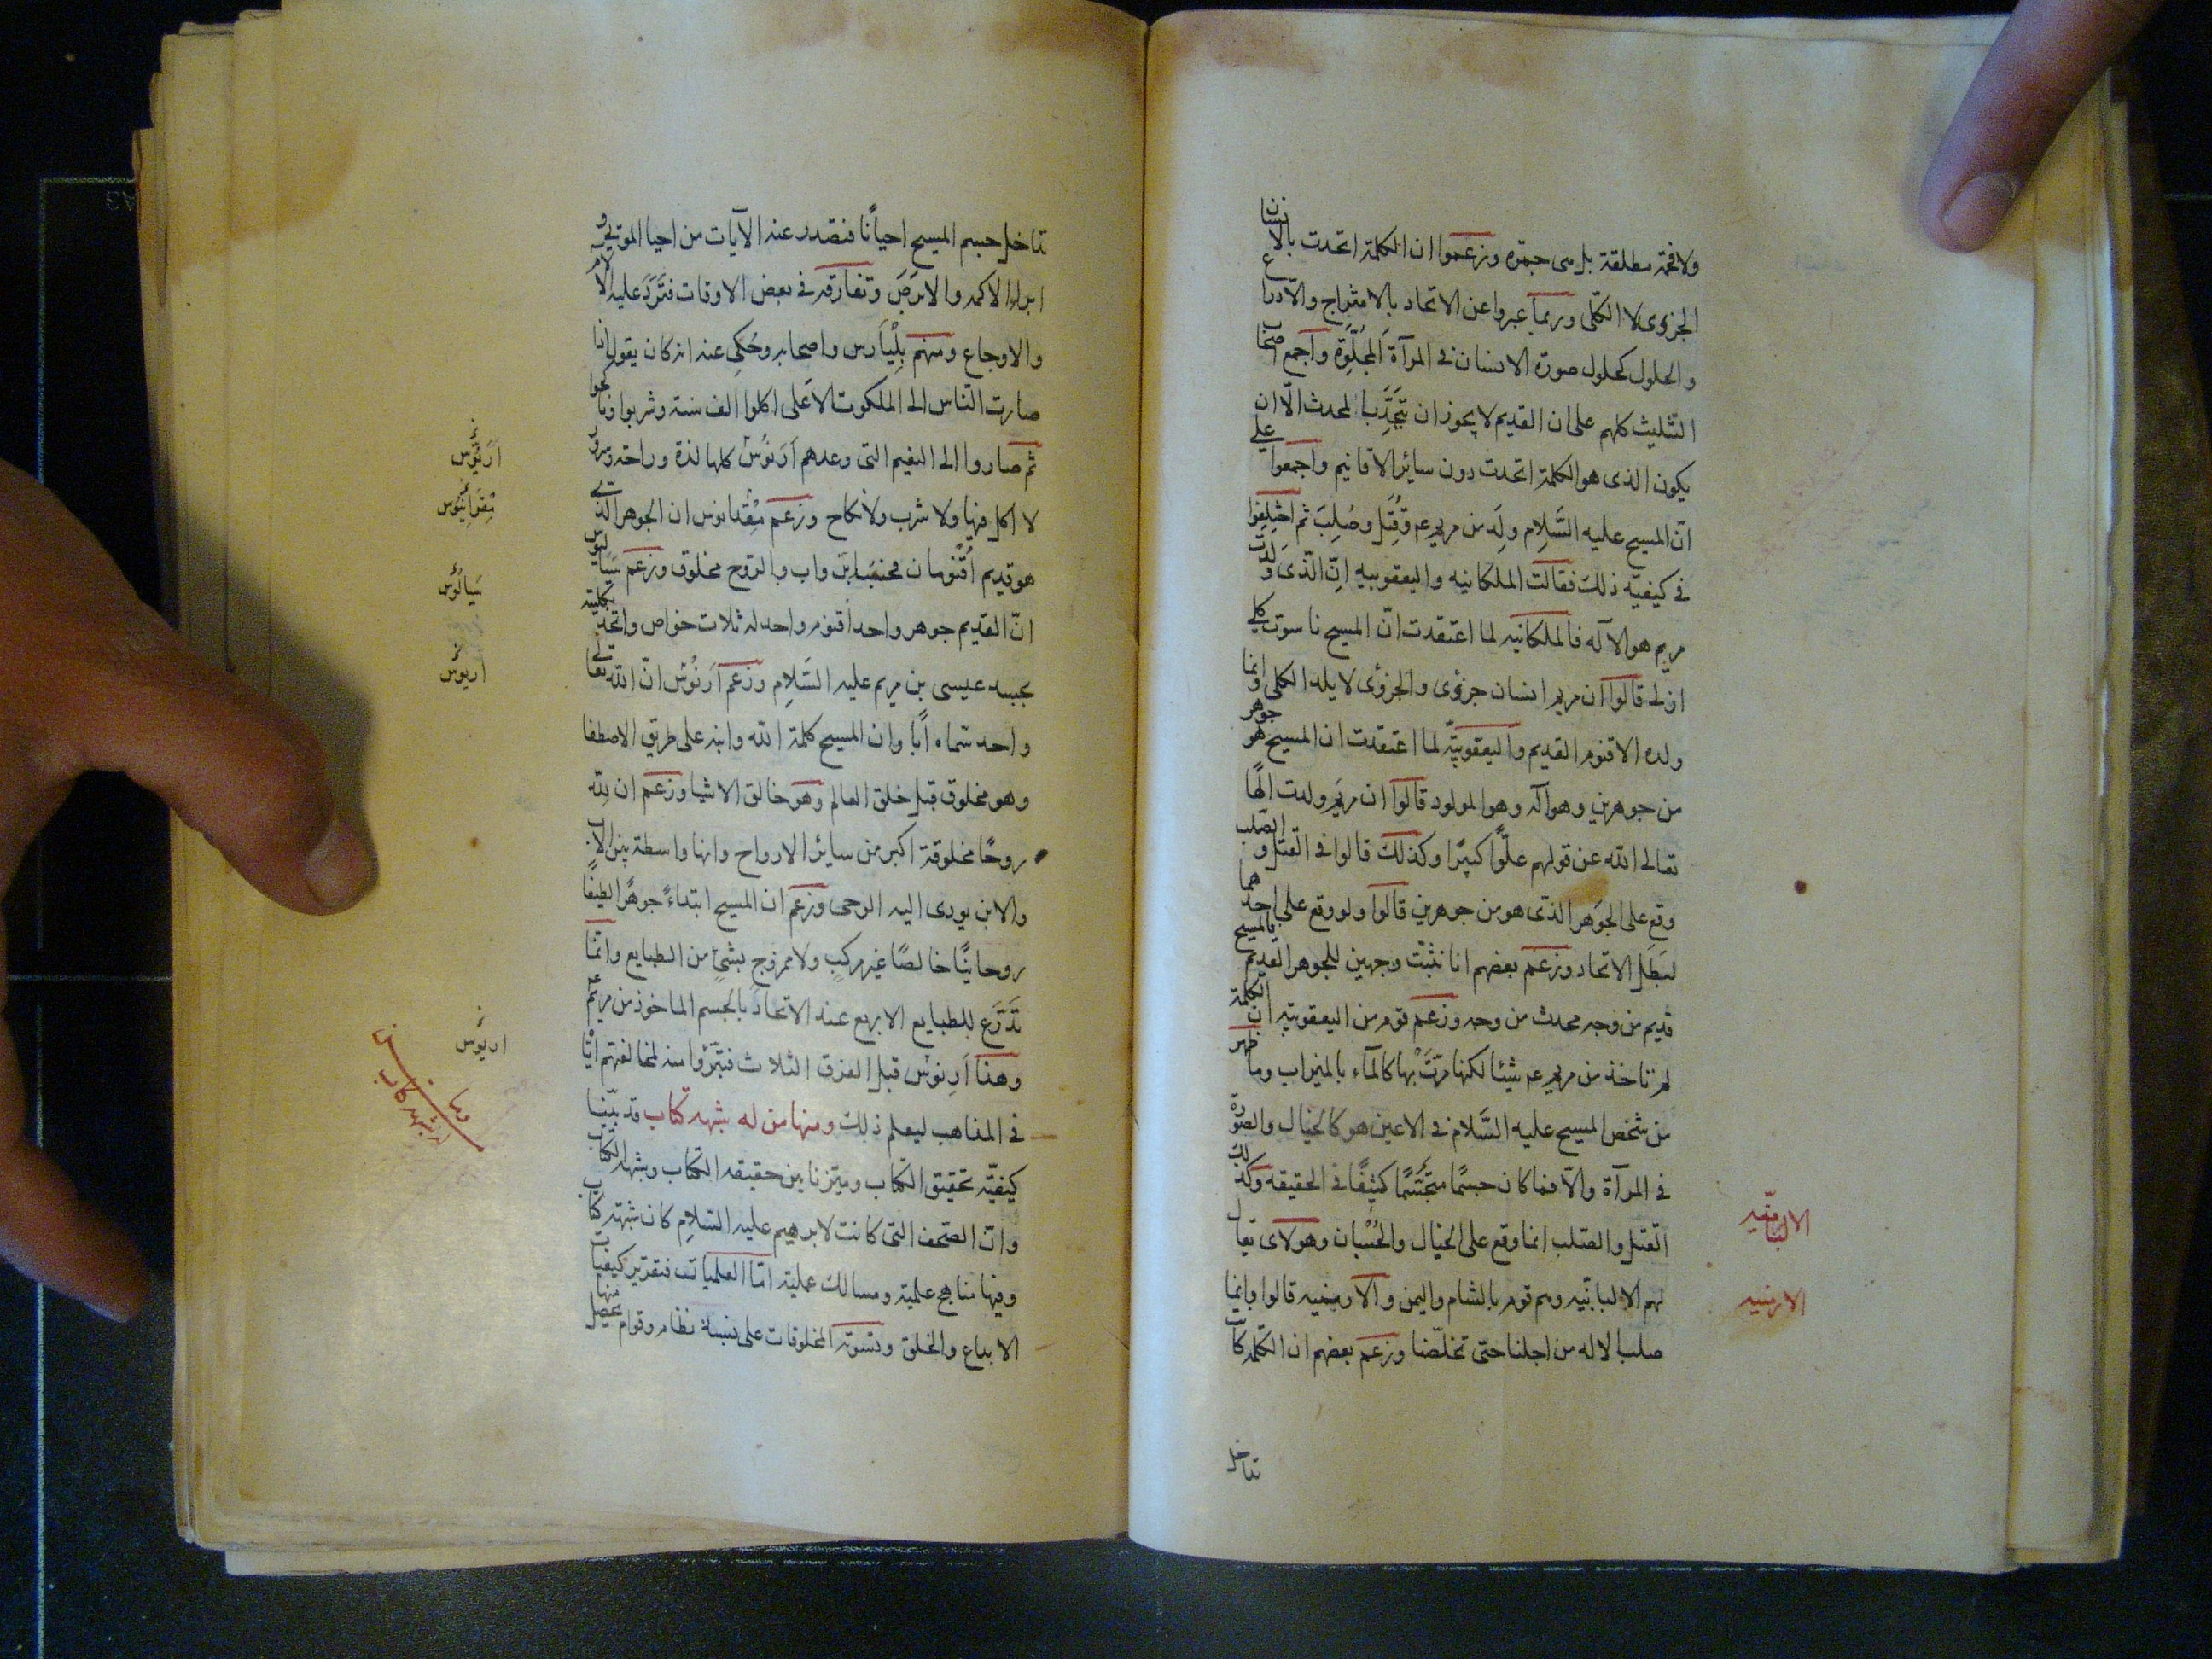 ولا فحة مطلقة بل هى جمرة وزعموا ان الكلمة اتحدت بالانسان
الجزوى لا الكلى وربما عبروا عن الاتحاد بالامتزاج والادراع
والحلول كحلول صورة الانسان فى المرآة المجلوة واجمع اصحاب
التثليث كلهم على ان القديم لا يجوز ان يتحد بالمحدث الا ان
يكون الذى هو الكلمة اتحدت دون ساير الاقانيم واجمعوا على
ان المسيح عليه السلام ولد من مريم عم وقتل وصلب ثم اختلفوا
فى كيفية ذلك فقالت الملكانيه واليعقوبيه ان الذى ولدت
مريم هو الآله فالملكانيه لما اعتقدت ان المسيح ناسوت كلى
ازلى قالوا ان مريم انسان جزؤى والجزؤى لا يلد الكلى وانما
ولده الاقنوم القديم واليعقوبيّة لما اعتقدت ان المسيح هو جوهر
من جوهرين وهو آله وهو المولود قالوا ان مريم ولدت الهًا
تعالى الله عن قولهم علوًا كبيرًا وكذلك قالوا فى القتل والصلب
وقع على الجوهر الذى هو من جوهرين قالوا ولو وقع على احدهما
لبطل الاتحاد وزعم بعضهم انا نثبت وجهين للجوهر القديم فالمسيح
قديم من وجه محدث من وجه وزعم قوم من اليعقوبيه ان الكلمة
لم تاخذ من مريم عم شيئا لكنها مرّت بها كالمآء بالميزاب وما ظهر
من شخص المسيح عليه السلام فى الاعين هو كالخيال والصورة
فى المرآة والا فما كان جسمًا متجسّمًا كثيفًا فى الحقيقه وكذلك
القتل والصلب انما وقع على الخيال والحُسْبان وهولاى يقال
لهم الاليانيه وهم قوم بالشام واليمن والارمينيه قالوا وانما
صلب الاله من اجلنا حتى تخلّصنا وزعم بعضهم ان الكلمه كانت
تداخل
الارمنيه
تداخل جسم المسيح احيانًا فتصدر عنه الآيات من احيا الموتى و
ابراء الاكمه والابرص وتفارقه فى بعض الاوقات فترد عليه الآلام
والاوجاع ومنهم بليارس واصحابه وحُكِى عنه انه كان يقول اذا
صارت الناس الى الملكوت الاعلى اكلوا الف سنة وشربوا وناكحوا
ثم صاروا الى النعيم التى وعدهم آرنوس كلها لذة وراحة وسرور
لا اكل فيها ولا شرب ولا نكاح وزعم مقدانوس ان الجوهر الذى
هو قديم اقنومان فحسب ابن واب والروح مخلوق وزعم سباليوس
ان القديم جوهر واحد اقنوم واحد له ثلات خواص واتحد بكليته
بجسد عيسى بن مريم عليه السلام وزعم آرنوس ان الله تعالى
واحد سماه ابًا وان المسيح كلمة الله وابنه على طريق الاصطفا
وهو مخلوق قبل خلق العالم وهو خالق الاشيا وزعم ان لله
روحًا مخلوقة اكبر من سائر الارواح وانها واسطة بين الاب
والابن يودى اليه الوحى وزعم ان المسيح ابتداءً جوهرًا لطيفًا
روحانيًا خالصًا غير مركب ولا ممزوج بشئ من الطبايع وانما
تدرّع بالطبايع الاربع عند الاتحاد بالجسم الماخوذ من مريم عم
وهذا آرنوس قبل الفرق الثلاث فتبرّؤا منه لمخالفتهم ايّا
فى المذاهب ليعلم ذلك ومنها من له شبهة كتاب قد بيّنا
كيفيّه تحقيق الكتاب وميّزنا بين حقيقه الكتاب وشبهه الكتاب
وان الصحف التى كانت لابرهيم عليه السلام كان شبهة كتاب
وفيها مناهج علمية ومسالك عملية اما العلميات فتقرير كيفيات
الابداع والخلق وتسوية المخلوقات على نسبة نظام وقوام يحصل منها
آرنوس
سيالوس
اريوس
اريوس